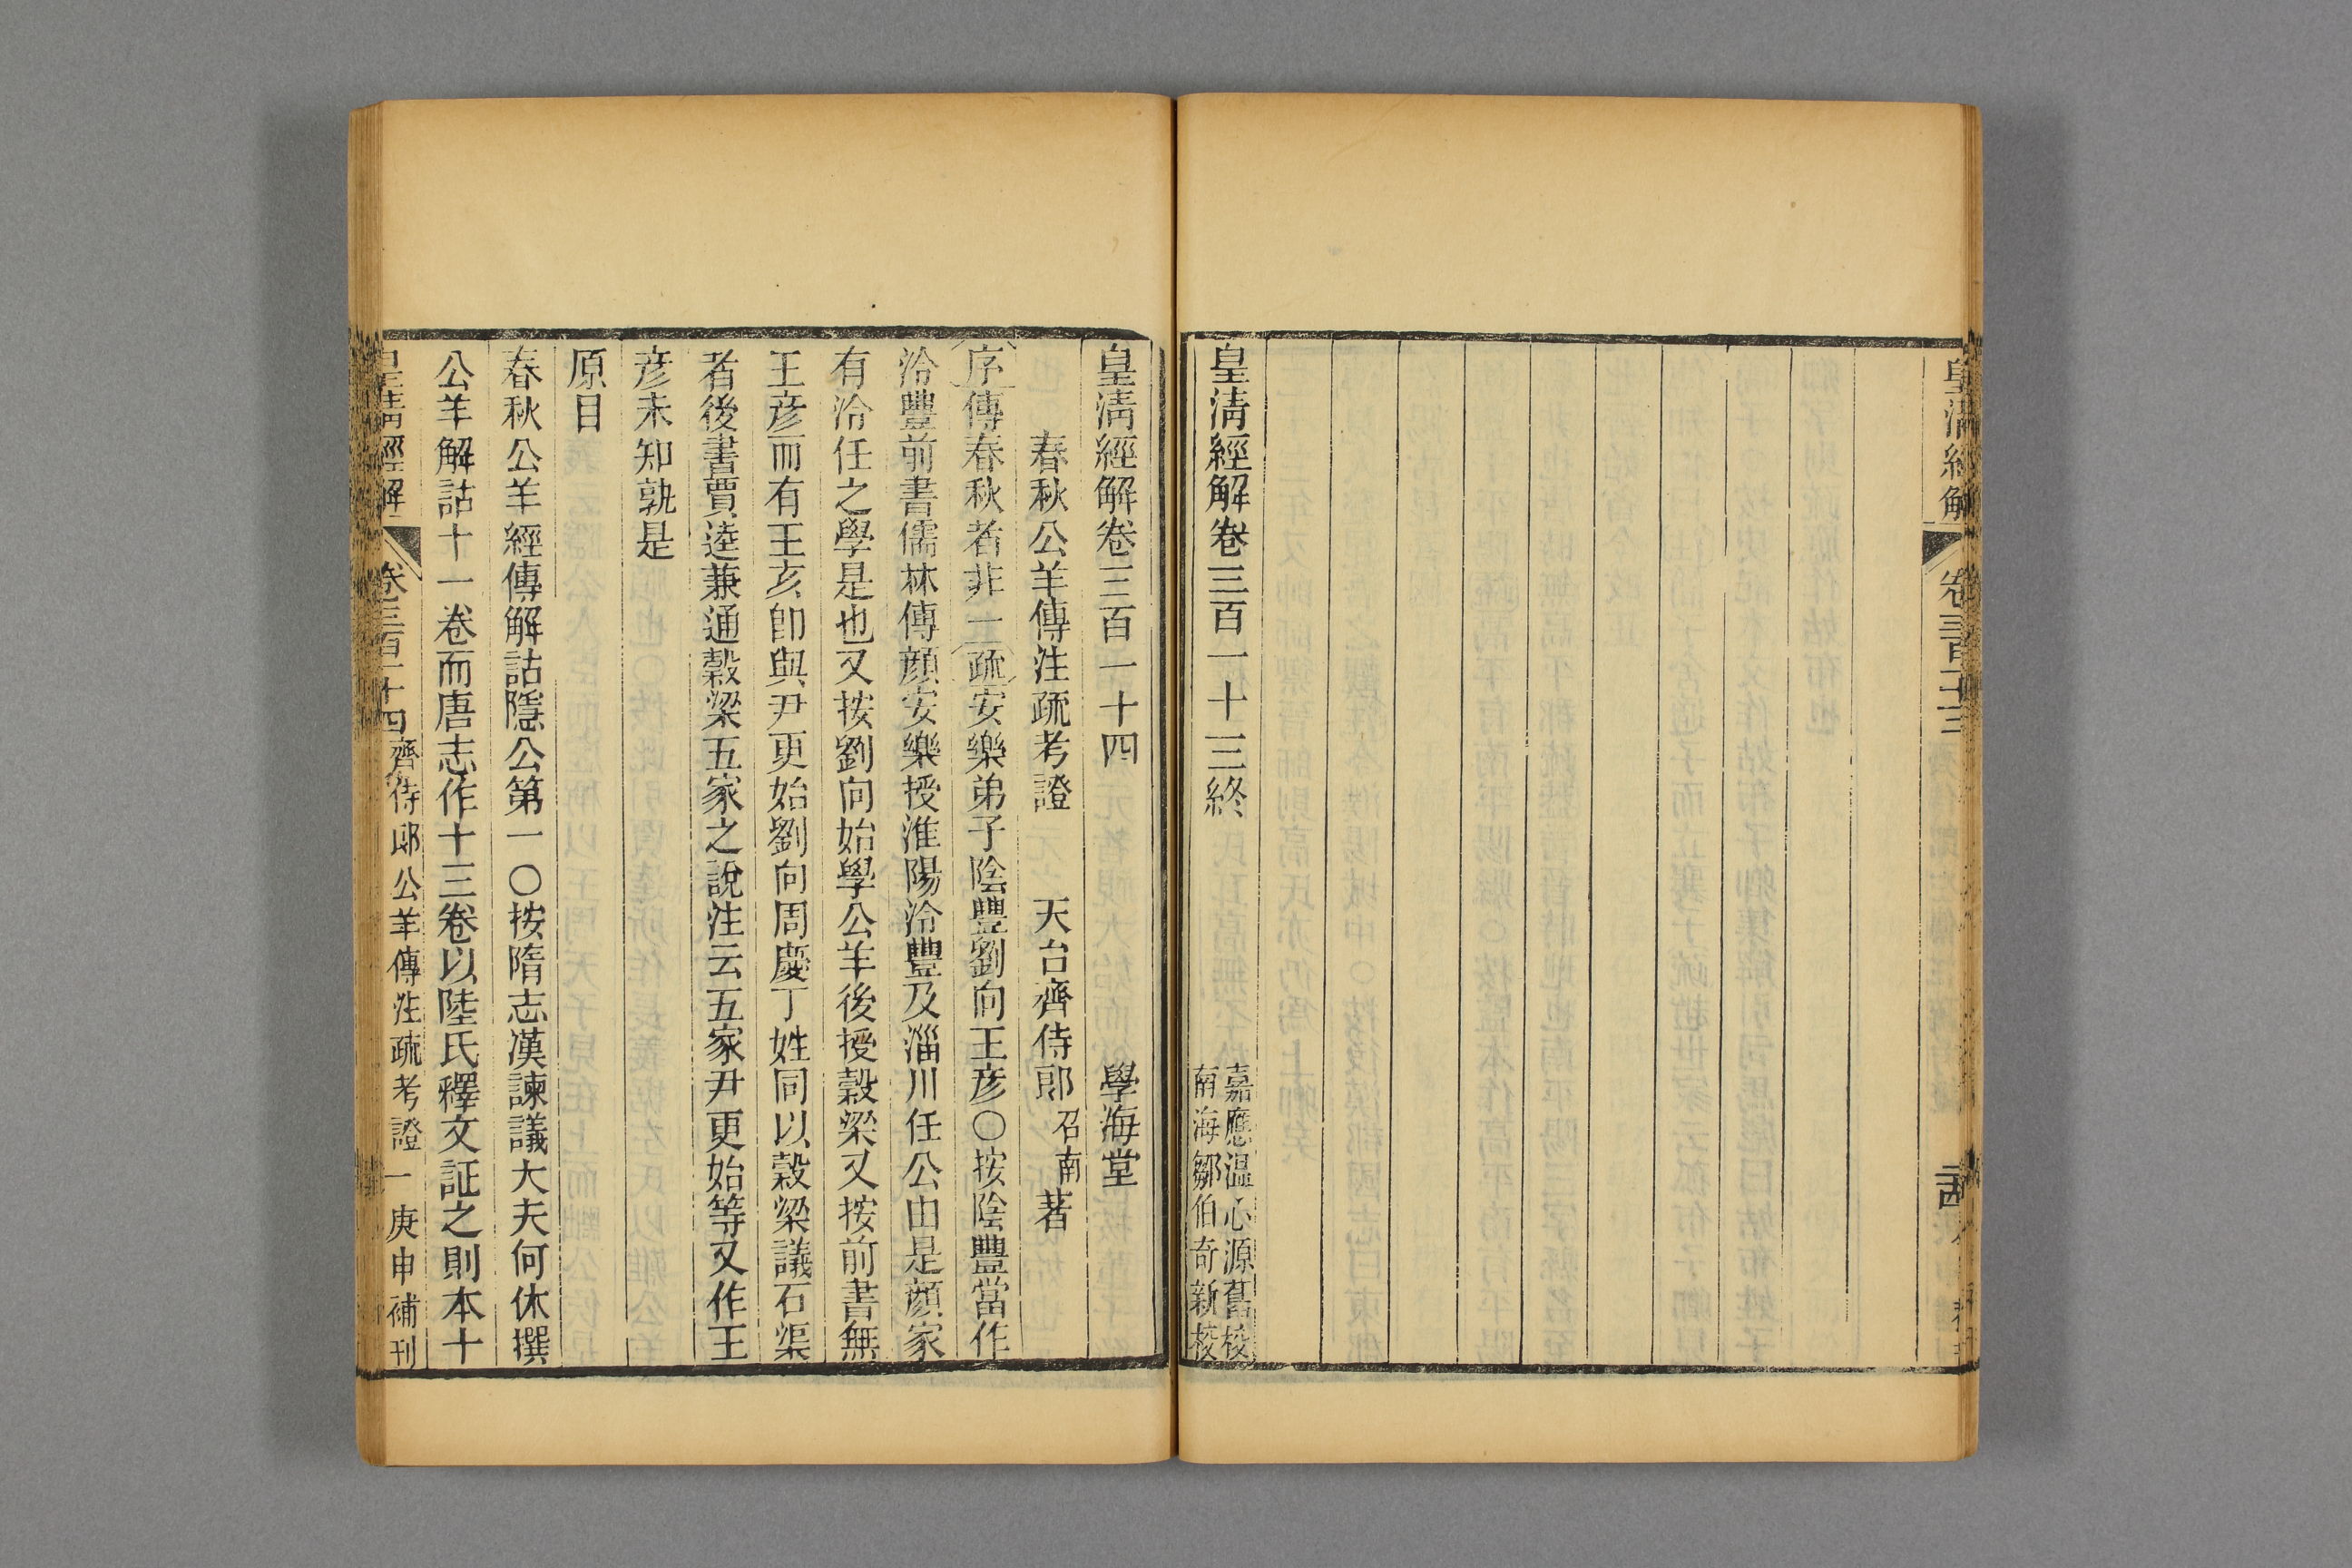 皇清經解
卷三百一十三
皇清經解卷三百一十三終
嘉應溫心源舊校
南海鄒伯奇新校
皇清經解卷三百一十四
學海堂
春秋公羊傳注疏考證
天台齊侍郎召南著
序傳春秋者非一疏安樂弟子陰豐劉向王彥〇按陰豐當作
泠豐前書儒林傳顏安樂授淮陽泠豐及淄川任公由是顏家
有泠任之學是也又按劉向始學公羊後授穀梁又按前書無
王彥而有王亥卽與尹更始劉向周慶丁姓同以穀梁議石渠
者後書賈逵兼通穀梁五家之說注云五家尹更始等又作王
彥未知孰是
原目
春秋公羊經傳解詁隱公第一〇按隋志漢諫議大夫何休撰
公羊解詁十一卷而唐志作十三卷以陸氏釋文証之則本十
皇清經解
卷三百一十四
齊侍郎公羊傳注疏考證
一
庚申補刊